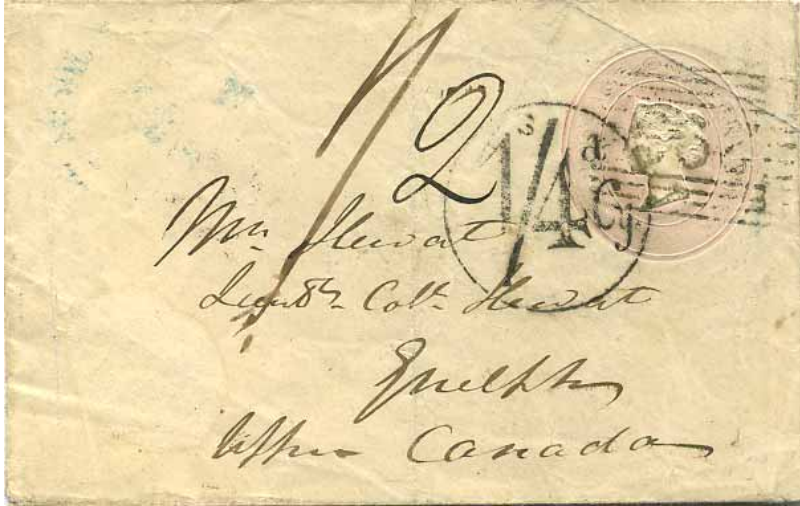 1/2
1/4 Cy
Mrs. Hewat
Lieut. Coll. Hewat
Guelph
Upper Canada